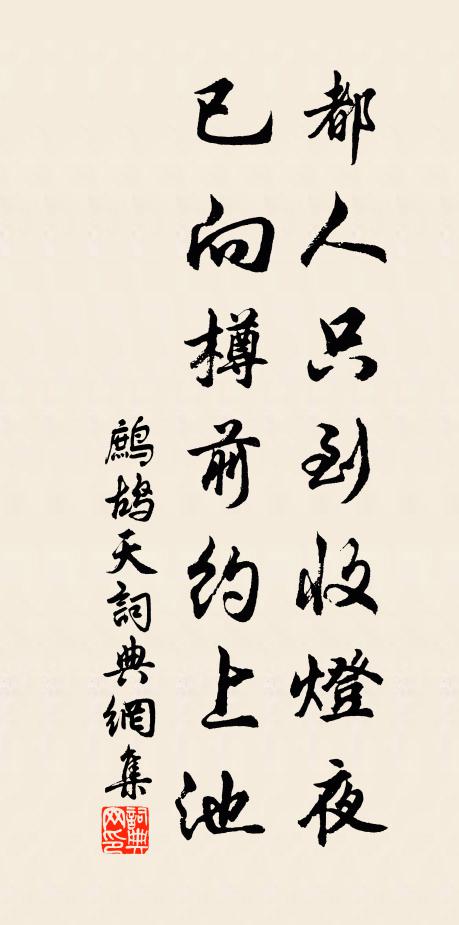 都人只到收燈夜
已向樽前約上池
鷓鴣天詞典網集
詞典
网印